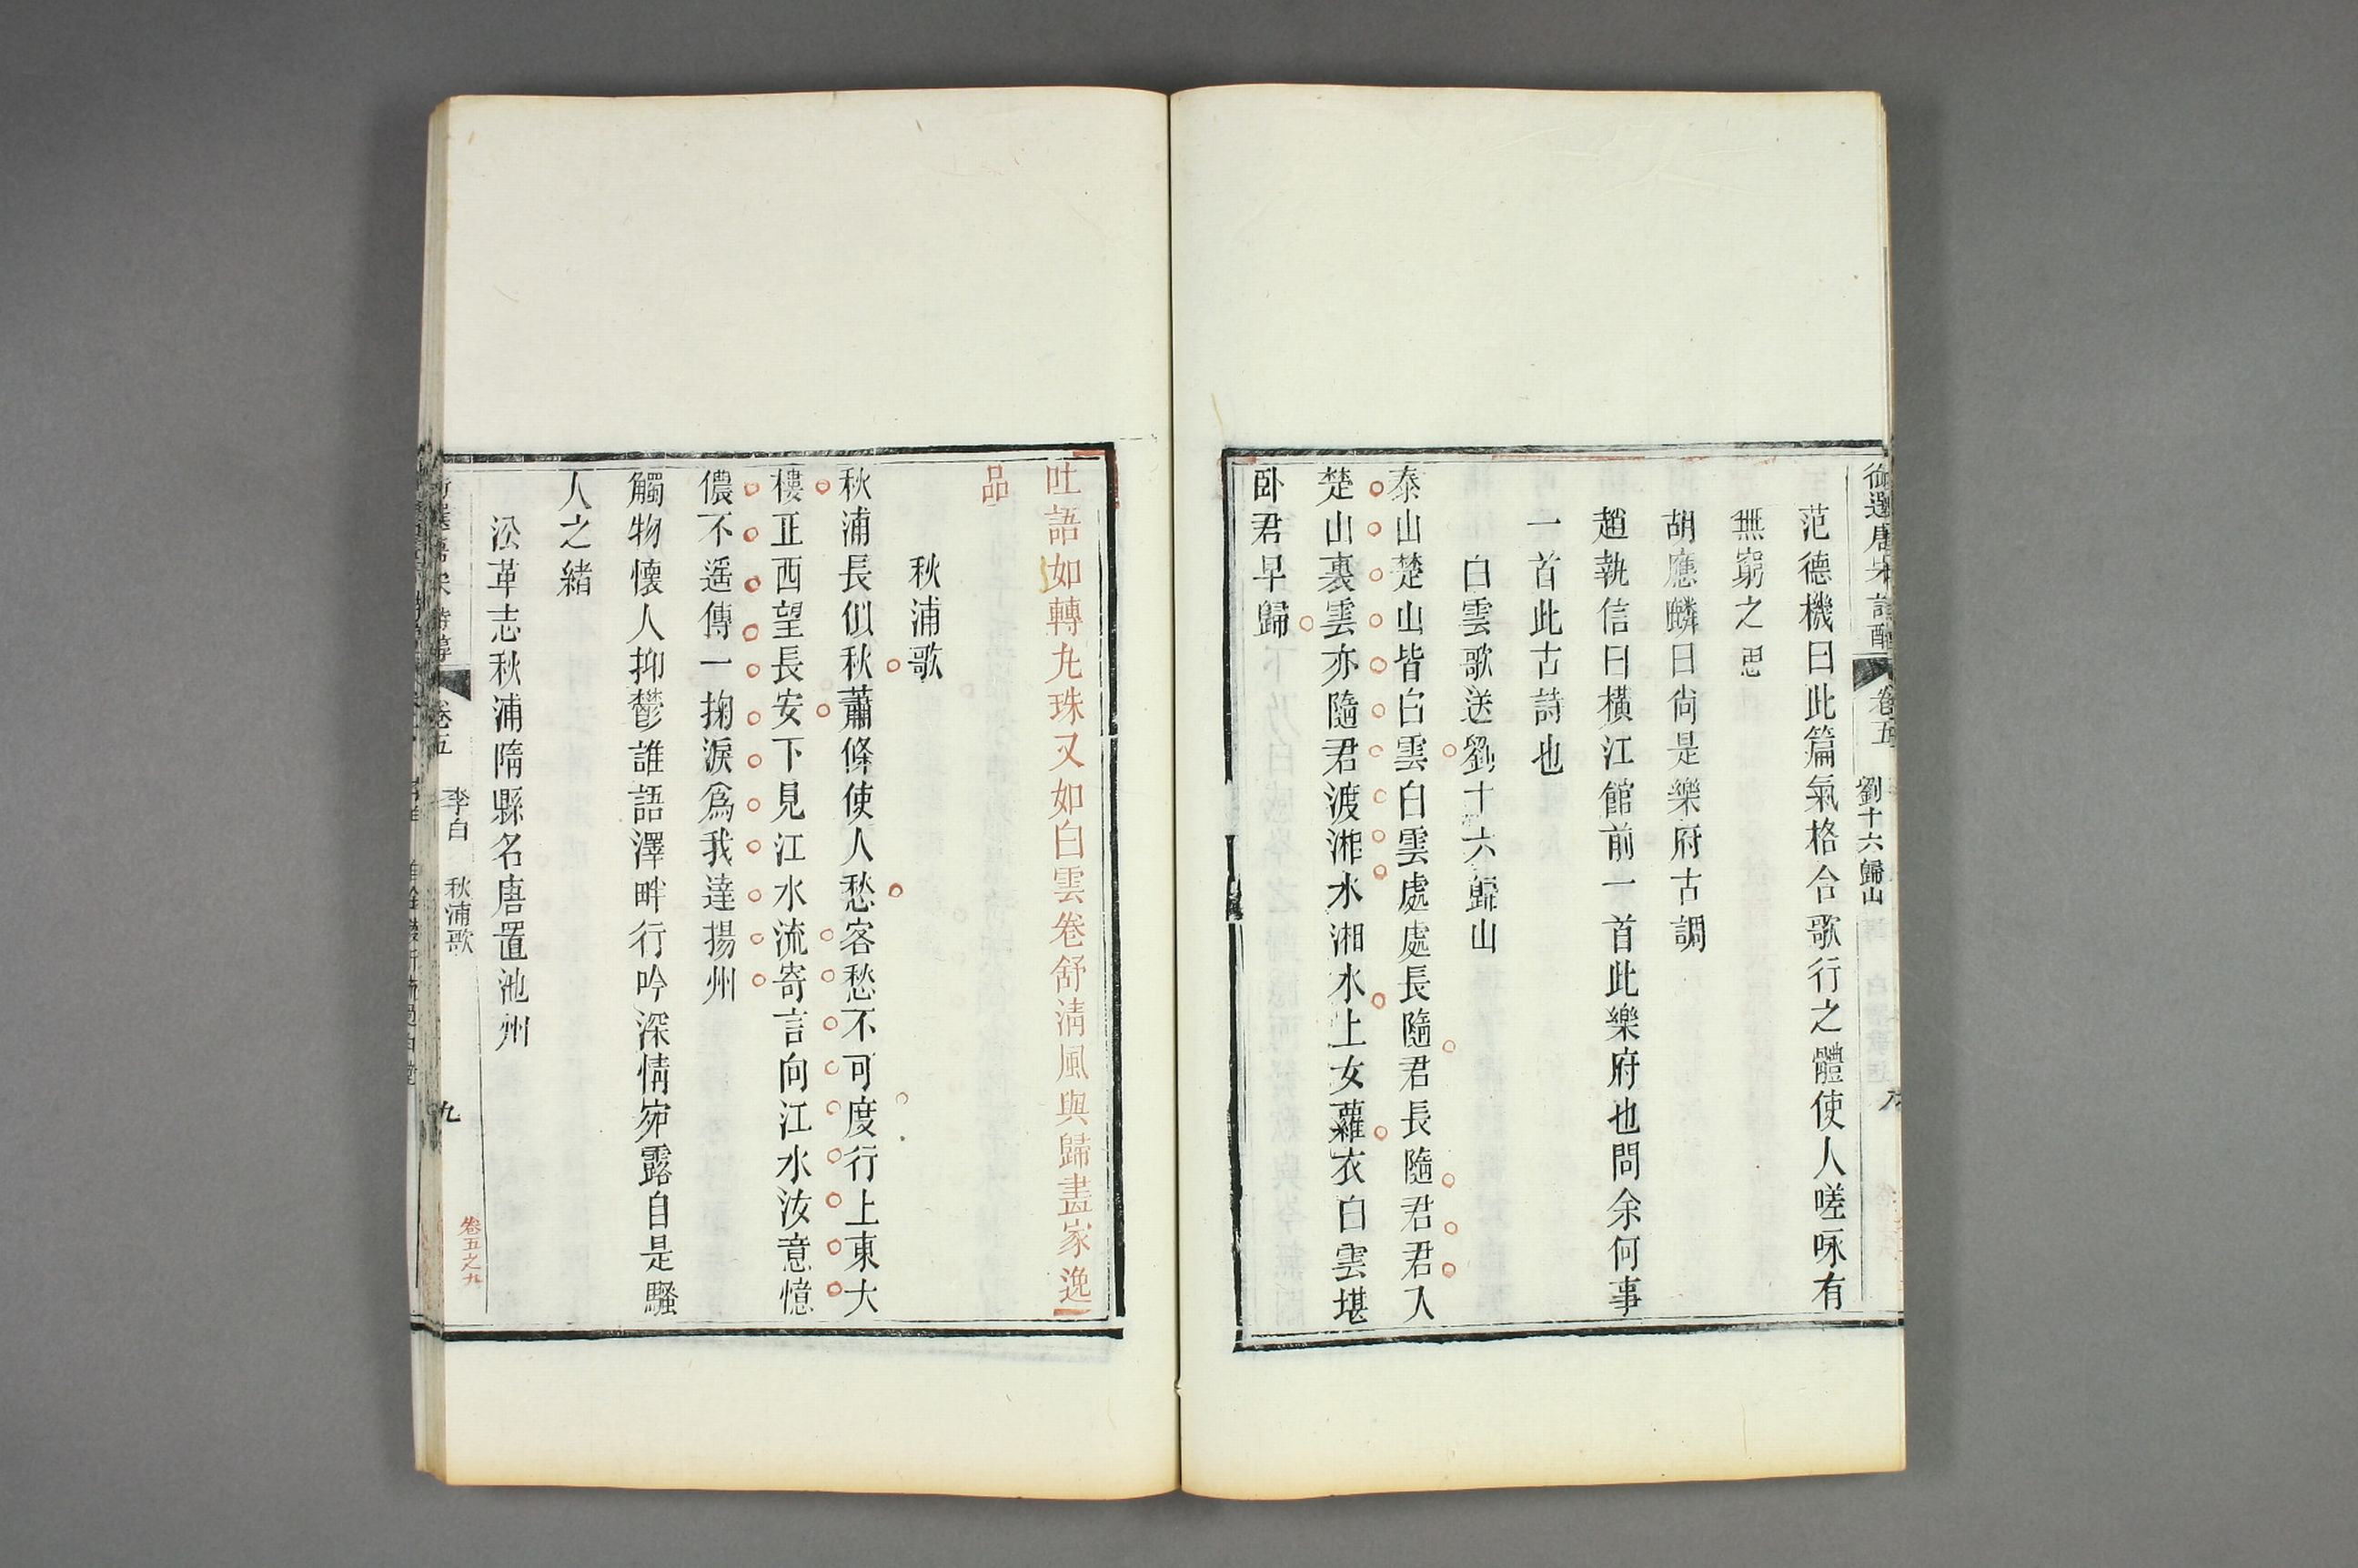 御選唐宋詩醇 卷五 劉十六歸山
范德機曰此篇氣格合歌行之體使人嗟咏有
無窮之思
胡應麟曰尚是樂府古調
趙執信曰橫江館前一首此樂府也問余何事
一首此古詩也
白雲歌送劉十六歸山
泰山楚山皆白雲白雲處處長隨君長隨君君入
楚山裏雲亦隨君渡湘水湘水上女蘿衣白雲堪
臥君早歸
吐語如轉九珠又如白雲卷舒清風與歸畫家逸
品
秋浦歌
秋浦長似秋蕭條使人愁客愁不可度行上東大
樓正西望長安下見江水流寄言向江水汝意憶
儂不遥傳一掬淚爲我達揚州
觸物懷人抑鬱誰語澤畔行吟深情宛露自是騷
人之緒
㳂革志秋浦隋縣名唐置池州
卷五 李白 秋浦歌 九
卷五之九